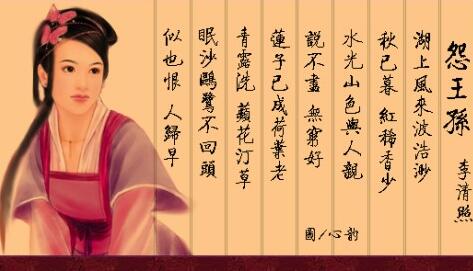 怨王孫
李清照
湖上風來波浩渺
秋已暮 紅稀香少
水光山色與人親
說不盡 無窮好
蓮子已成荷葉老
青露洗 蘋花汀草
眠沙鷗鷺不回頭
似也恨 人歸早
圖/心韵